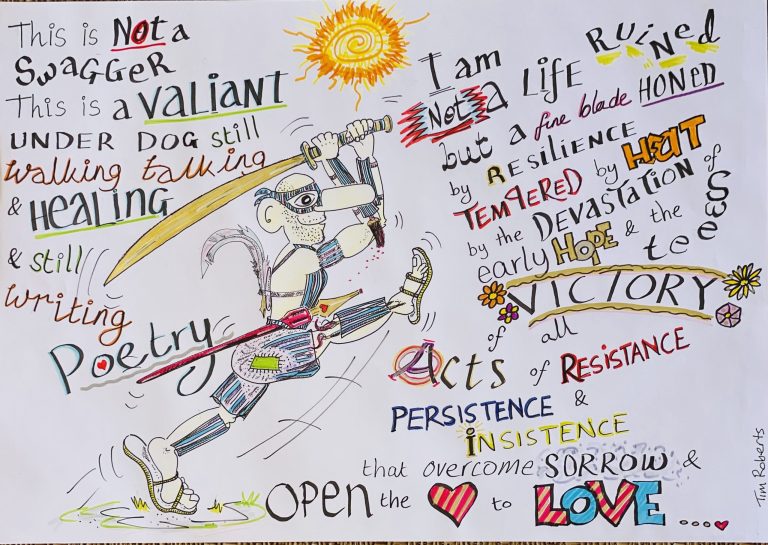 This is Not a
SWAGGER
This is a VALIANT
UNDER DOG still
walking talking
& HEALING
& still
writing
Poetry
I am
Not a LiFE RUiNED
but a fine blade HONED
by RESILIENCE
TEMPERED by HEAT
by the DEVASTATION of
early HOPE & the
sweetee
VICTORY
of all
Acts of RESISTANCE
PERSISTENCE &
iNSISTENCE
that overcome SORROW &
OPEN the ♥ to LOVE ....♥
Tim Roberts